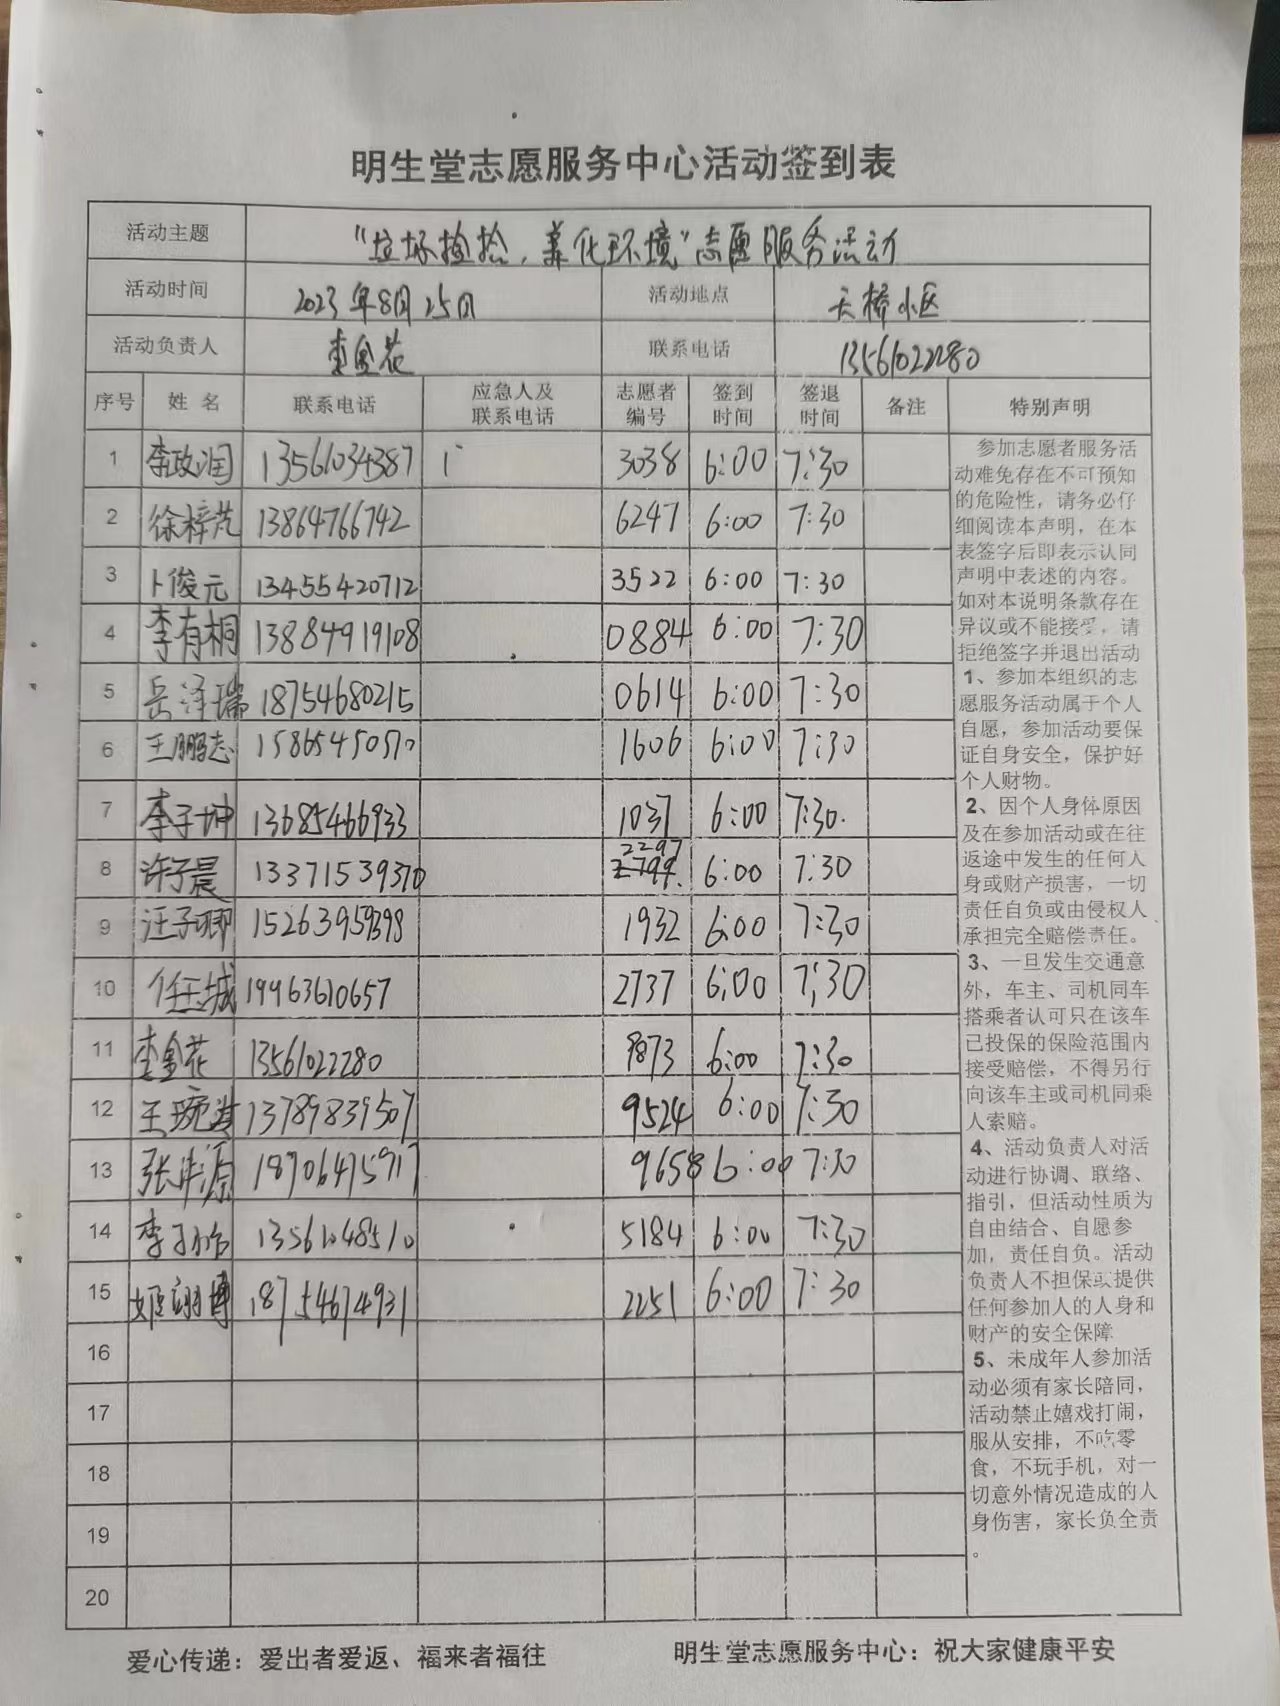 明生堂志愿服务中心活动签到表
活动主题 “垃圾捡拾，美化环境”志愿服务活动
活动时间 2023年8月25日 活动地点 天桥小区
活动负责人 李金花 联系电话 13561022280
序号 姓名 联系电话 应急人及联系电话 志愿者编号 签到时间 签退时间 备注 特别声明
1 李政润 13561034387 3038 6:00 7:30
2 徐梓芃 13864766742 6247 6:00 7:30
3 卜俊元 13455420712 3522 6:00 7:30
4 李有桐 13884919108 0884 6:00 7:30
5 岳泽瑞 18754680215 0614 6:00 7:30
6 王鹏志 15865450570 1606 6:00 7:30
7 李子坤 13685466933 1037 6:00 7:30.
8 许子晨 13371539370 2297 6:00 7:30
9 汪子卿 15263959398 1932 6:00 7:30
10 任玉城 19963610657 2737 6:00 7:30
11 李金花 13561022280 9873 6:00 7:30
12 王琬淇 13789839507 9524 6:00 7:30
13 张沣源 18706475917 9658 6:00 7:30
14 李 13561048510 5184 6:00 7:30
15 姬翊博 18754674931 2251 6:00 7:30
16
17
18
19
20
参加志愿者服务活
动难免存在不可预知
的危险性，请务必仔
细阅读本声明，在本
表签字后即表示认同
声明中表述的内容。
如对本说明条款存在
异议或不能接受，请
拒绝签字并退出活动
1、参加本组织的志
愿服务活动属于个人
自愿，参加活动要保
证自身安全，保护好
个人财物。
2、因个人身体原因
及在参加活动或在往
返途中发生的任何人
身或财产损害，一切
责任自负或由侵权人
承担完全赔偿责任。
3、一旦发生交通意
外，车主、司机同车
搭乘者认可只在该车
已投保的保险范围内
接受赔偿，不得另行
向该车主或司机同乘
人索赔。
4、活动负责人对活
动进行协调、联络、
指引，但活动性质为
自由结合、自愿参
加，责任自负。活动
负责人不担保或提供
任何参加人的人身和
财产的安全保障
5、未成年人参加活
动必须有家长陪同，
活动禁止嬉戏打闹，
服从安排，不吃零
食，不玩手机，对一
切意外情况造成的人
身伤害，家长负全责
。
爱心传递：爱出者爱返、福来者福往 明生堂志愿服务中心：祝大家健康平安